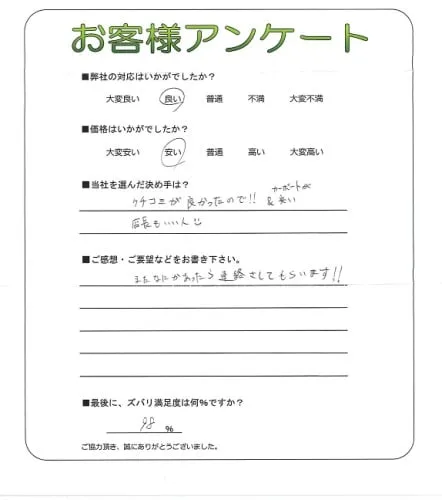 お客様アンケート
■弊社の対応はいかがでしたか?
大変良い 良い 普通 不満 大変不満
■価格はいかがでしたか?
大変安い 安い 普通 高い 大変高い
■当社を選んだ決め手は?
クチコミが良かったので!! カーポートが&安い
店長もいい人
■ご感想・ご要望などをお書き下さい。
またなにかあったら連絡させてもらいます!!
■最後に、ズバリ満足度は何%ですか?
98 %
ご協力頂き、誠にありがとうございました。